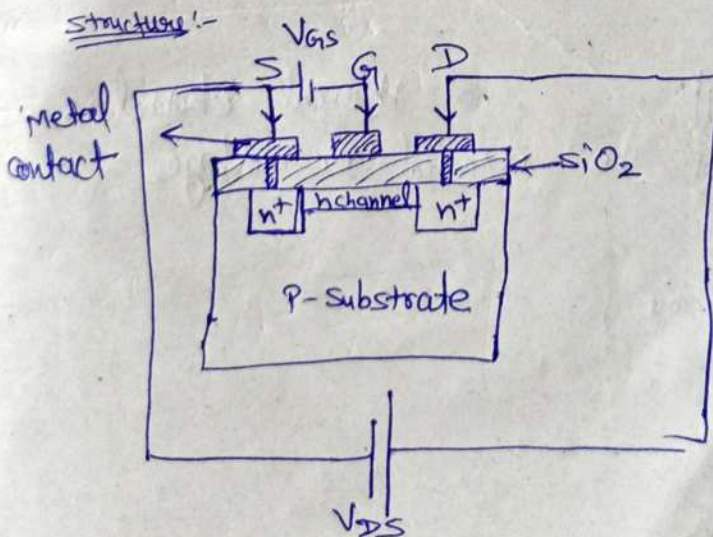 structure:-
VGS
S G D
Metal
contact
SiO2
n+ n channel n+
P-Substrate
VDS